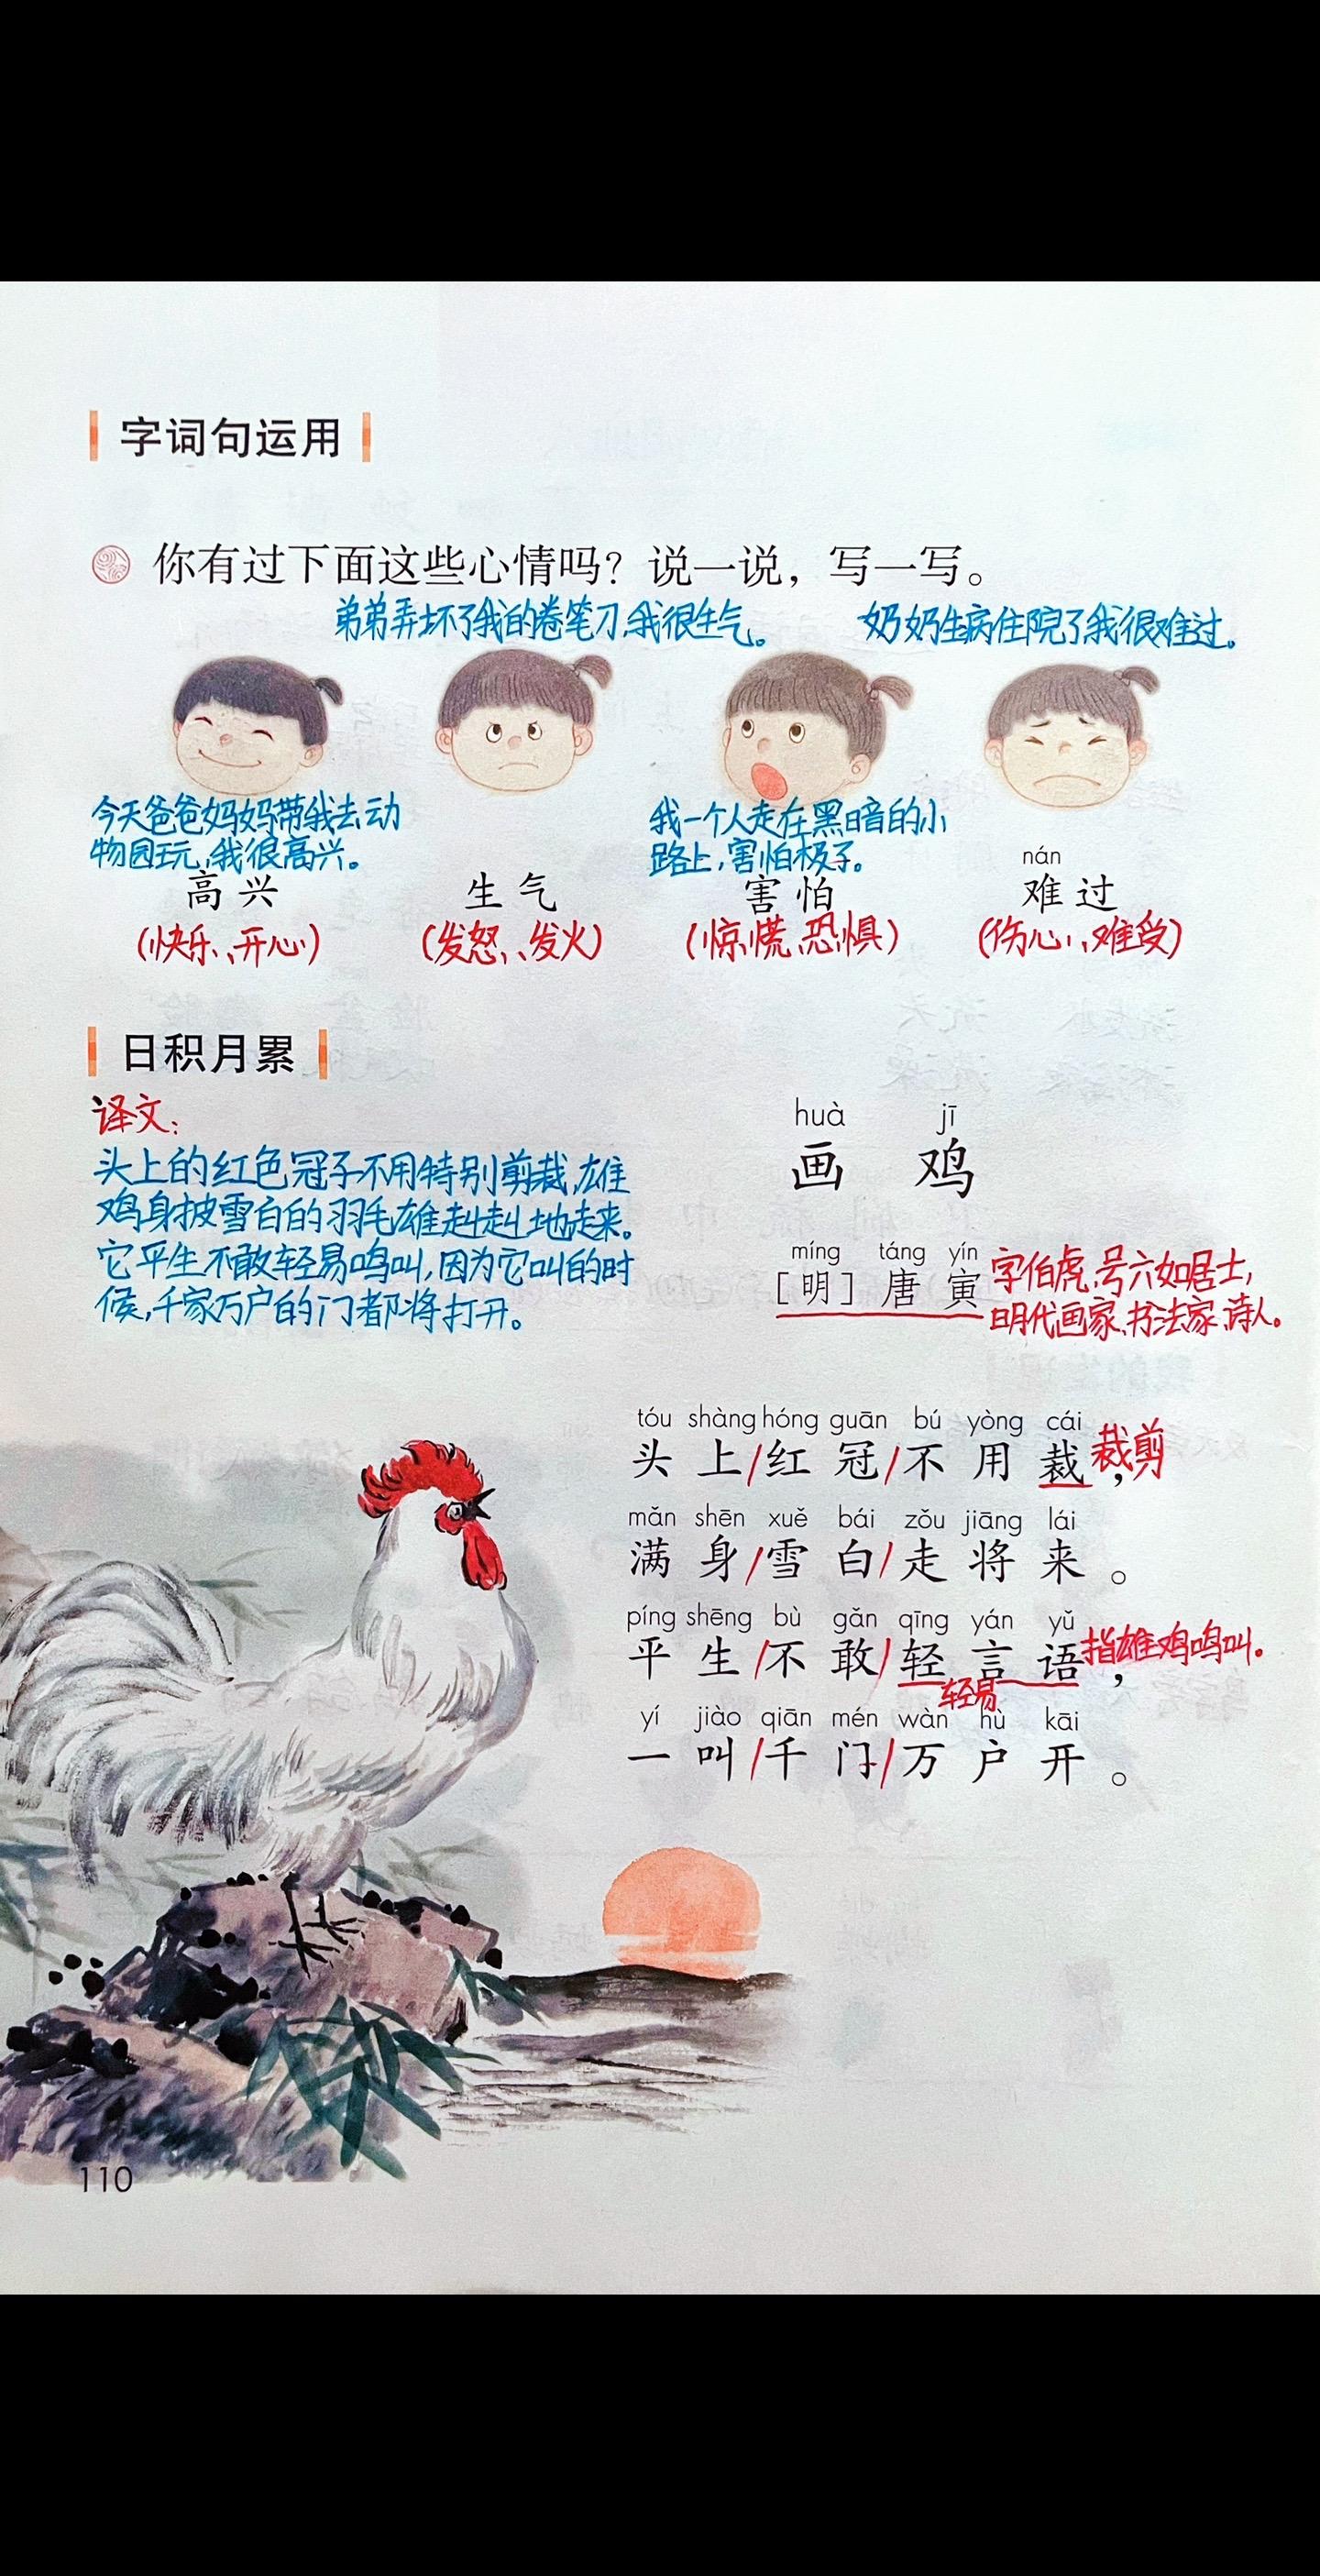 字词句运用
你有过下面这些心情吗？说一说，写一写。
弟弟弄坏了我的卷笔刀,我很生气。
奶奶生病住院了我很难过。
今天爸爸妈妈带我去动
物园玩,我很高兴。
我一个人走在黑暗的小
路上,害怕极了。
nán
高兴 生气 害怕 难过
(快乐、开心) (发怒、发火) (惊慌、恐惧) (伤心、难受)
日积月累
译文:
头上的红色冠子不用特别剪裁,雄
鸡身披雪白的羽毛雄赳赳地走来。
它平生不敢轻易鸣叫,因为它叫的时
候,千家万户的门都将打开。
huà jī
画鸡
míng táng yín
[明]唐寅
字伯虎,号六如居士,
明代画家、书法家、诗人。
tóu shàng hóng guān bú yòng cái
头上/红冠/不用裁，
裁剪
mǎn shēn xuě bái zǒu jiāng lái
满身/雪白/走将来。
píng shēng bù gǎn qīng yán yǔ
平生/不敢/轻言语，
指雄鸡鸣叫。
轻易
yí jiào qiān mén wàn hù kāi
一叫/千门/万户开。
110